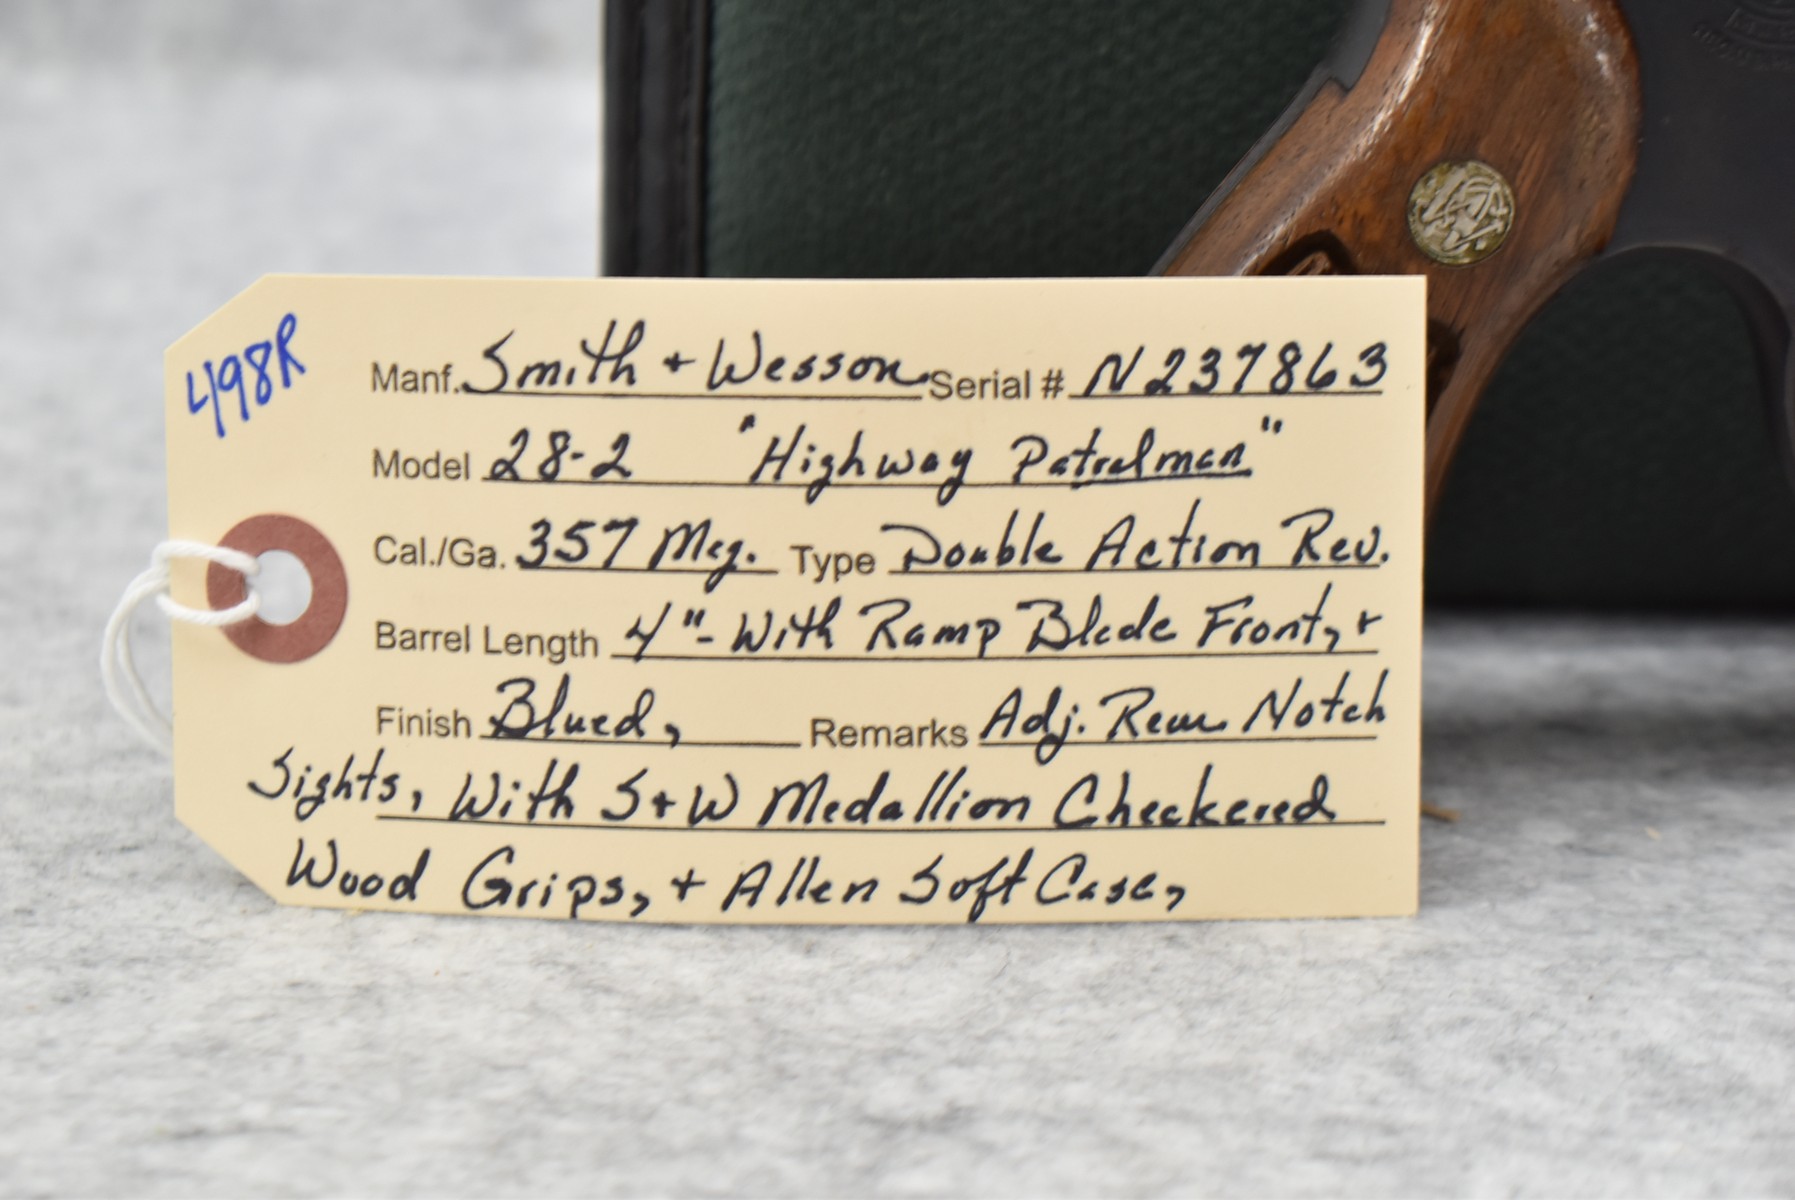 498R
Manf. Smith + Wesson Serial # N237863
Model 28-2 "Highway Patrolman"
Cal./Ga. 357 Mag. Type Double Action Rev.
Barrel Length 4"- With Ramp Blade Front, +
Finish Blued, Remarks Adj. Rear Notch
Sights, With S+W Medallion Checkered
Wood Grips, + Allen Soft Case,